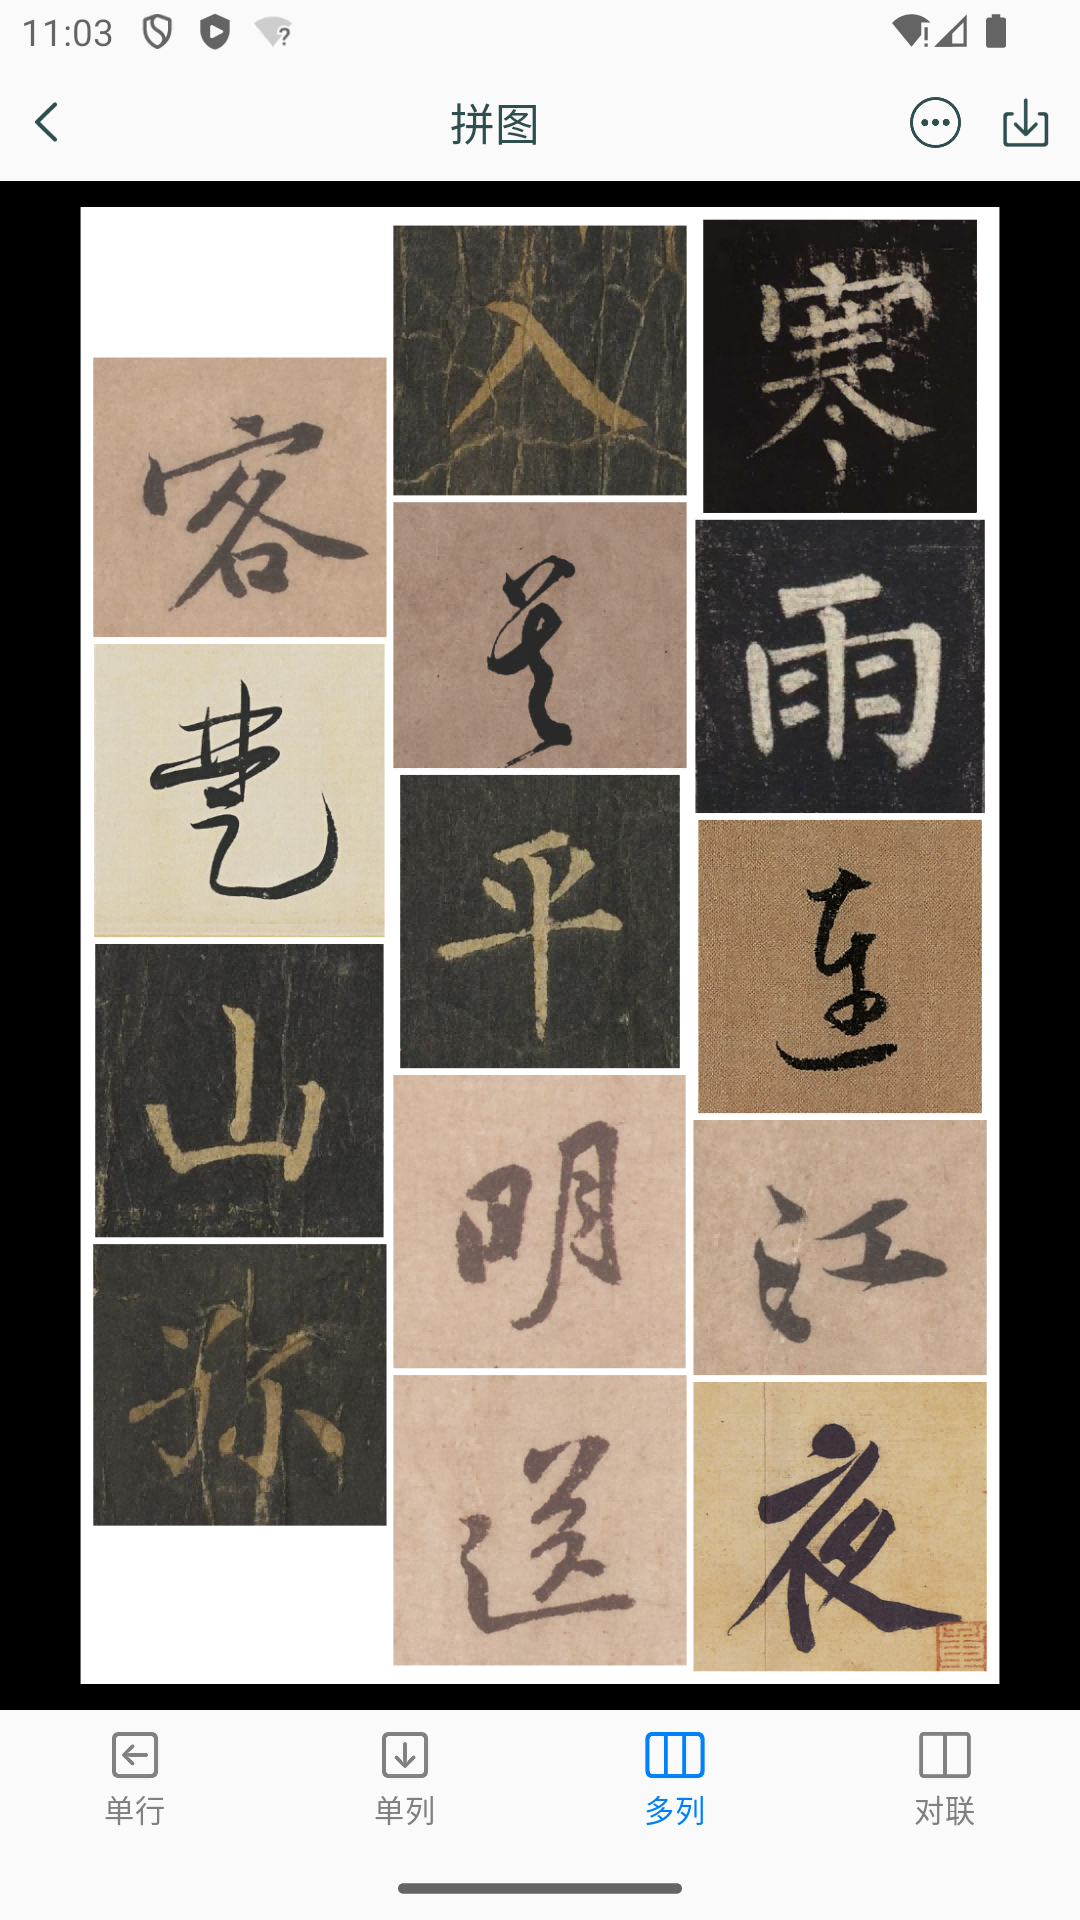 11:03
拼图
寒雨連江夜
入吳平明送
客楚山孤
单行
单列
多列
对联